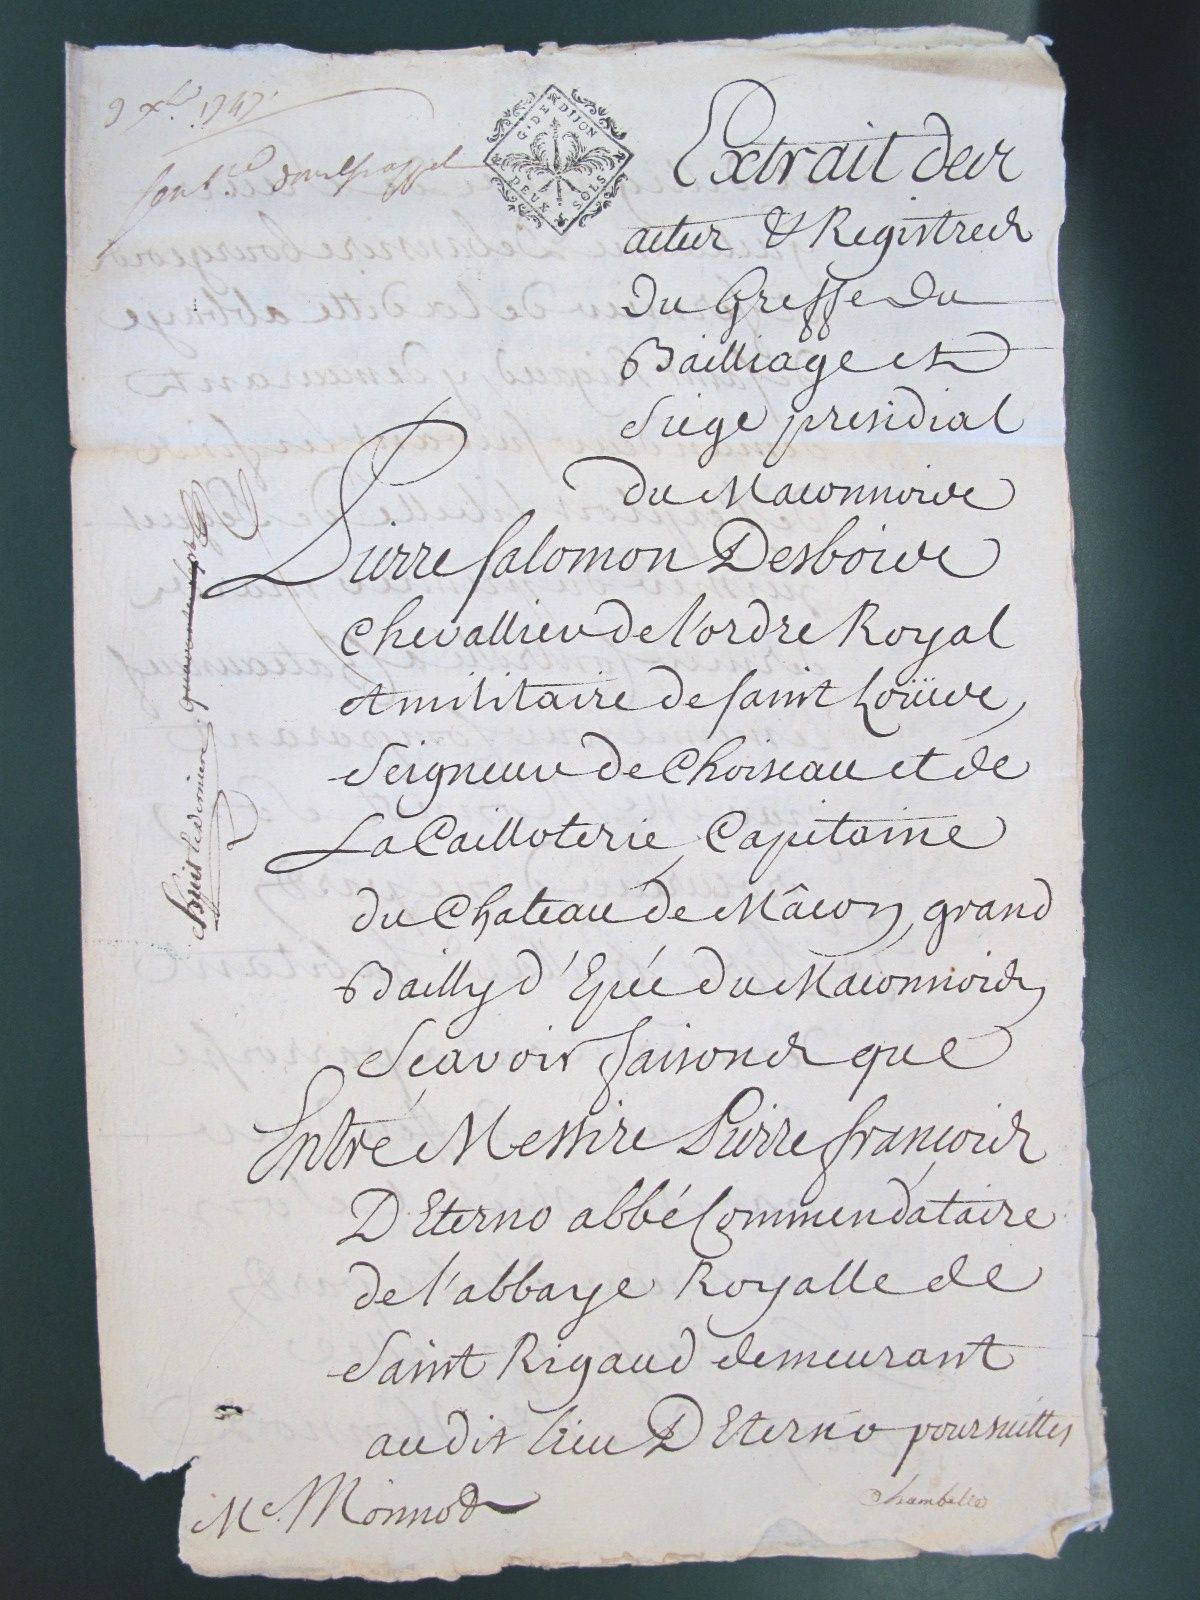 9 xbre 1747
G. DE DIJON
DEUX SOLS
Extrait des
actes & Registres
Du Greffe Du
Bailliage et
Siege presidial
du Maconnois
Pierre Salomon Desbois
chevallier de l'ordre Royal
et militaire de saint Loüis,
Seigneur de Choiseau et de
La Cailloterie, Capitaine
du Chateau de Mâcon, grand
Bailly d'Epée du Maconnois,
Scavoir faisons que
Entre Messire Pierre françois
D Eterno abbé Commendataire
de l'abbaye Royalle de
Saint Rigaud demeurant
audit lieu D Eterno poursuittes
Me. Monnot
huit le dernier